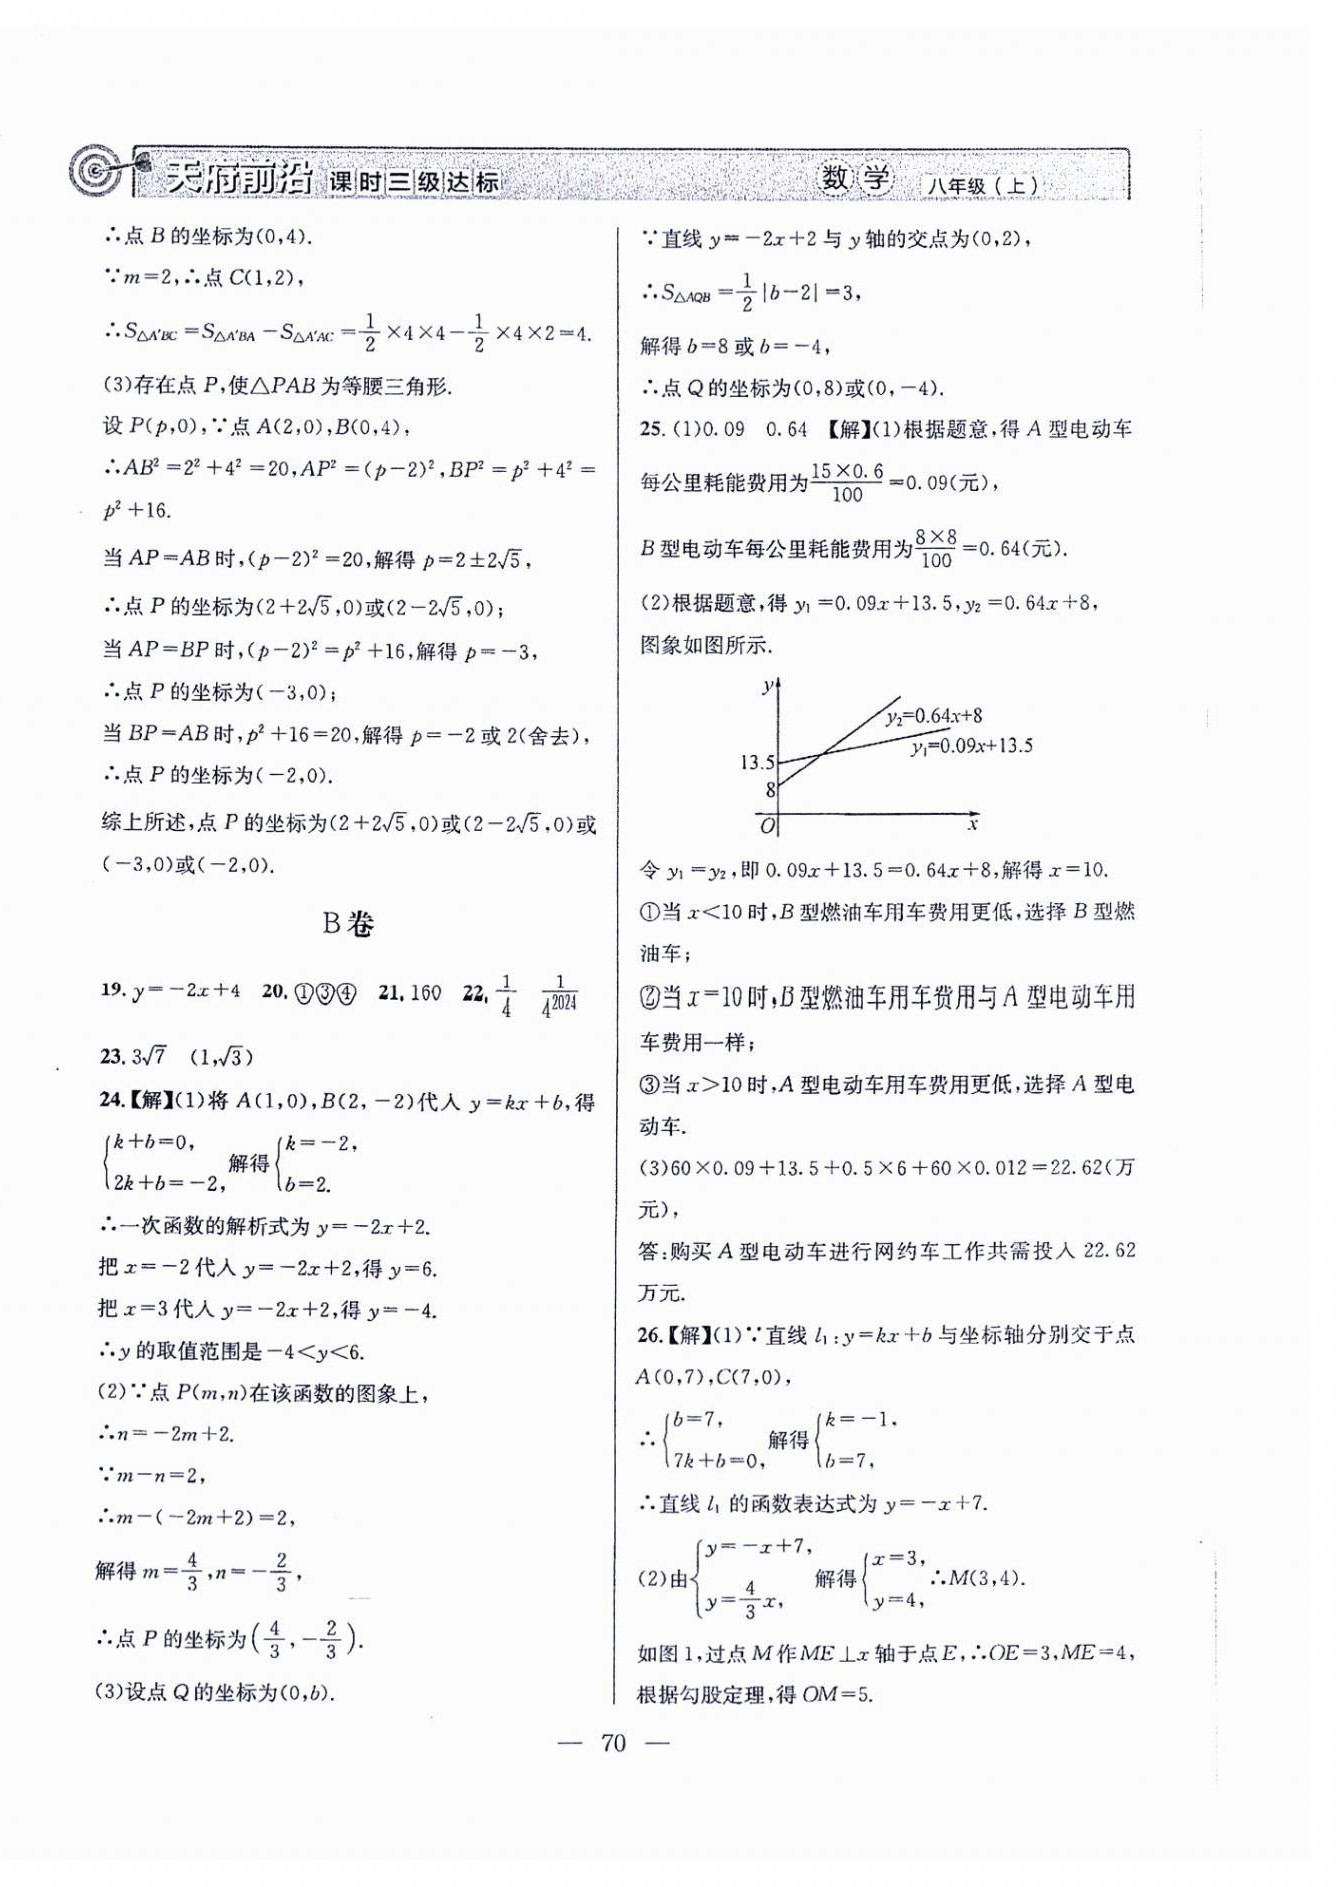 天府前沿 课时三级达标 数学 八年级(上)
∴点 B 的坐标为(0,4).
∵m=2,∴点 C(1,2),
∴S△A'BC=S△A'BA-S△A'AC=1/2×4×4-1/2×4×2=4.
(3)存在点 P,使△PAB 为等腰三角形.
设 P(p,0),∵点 A(2,0),B(0,4),
∴AB²=2²+4²=20,AP²=(p-2)²,BP²=p²+4²=
p²+16.
当 AP=AB 时,(p-2)²=20,解得 p=2±2√5,
∴点 P 的坐标为(2+2√5,0)或(2-2√5,0);
当 AP=BP 时,(p-2)²=p²+16,解得 p=-3,
∴点 P 的坐标为(-3,0);
当 BP=AB 时,p²+16=20,解得 p=-2 或 2(舍去),
∴点 P 的坐标为(-2,0).
综上所述,点 P 的坐标为(2+2√5,0)或(2-2√5,0)或
(-3,0)或(-2,0).
B卷
19. y=-2x+4 20. ①③④ 21. 160 22. 1/4 1/4²⁰²⁴
23. 3√7 (1,√3)
24.【解】(1)将 A(1,0),B(2,-2)代入 y=kx+b,得
{k+b=0, 2k+b=-2, 解得{k=-2, b=2.
∴一次函数的解析式为 y=-2x+2.
把 x=-2 代入 y=-2x+2,得 y=6.
把 x=3 代入 y=-2x+2,得 y=-4.
∴y 的取值范围是-4<y<6.
(2)∵点 P(m,n)在该函数的图象上,
∴n=-2m+2.
∵m-n=2,
∴m-(-2m+2)=2,
解得 m=4/3,n=-2/3,
∴点 P 的坐标为(4/3,-2/3).
(3)设点 Q 的坐标为(0,b).
∵直线 y=-2x+2 与 y 轴的交点为(0,2),
∴S△AQB=1/2|b-2|=3,
解得 b=8 或 b=-4,
∴点 Q 的坐标为(0,8)或(0,-4).
25. (1)0.09 0.64 【解】(1)根据题意,得 A 型电动车
每公里耗能费用为15×0.6/100=0.09(元),
B 型电动车每公里耗能费用为8×8/100=0.64(元).
(2)根据题意,得 y₁=0.09x+13.5,y₂=0.64x+8,
图象如图所示.
y
y₂=0.64x+8
y₁=0.09x+13.5
13.5
8
O x
令 y₁=y₂,即 0.09x+13.5=0.64x+8,解得 x=10.
①当 x<10 时,B 型燃油车用车费用更低,选择 B 型燃
油车;
②当 x=10 时,B 型燃油车用车费用与 A 型电动车用
车费用一样;
③当 x>10 时,A 型电动车用车费用更低,选择 A 型电
动车.
(3)60×0.09+13.5+0.5×6+60×0.012=22.62(万
元),
答:购买 A 型电动车进行网约车工作共需投入 22.62
万元.
26.【解】(1)∵直线 l₁:y=kx+b 与坐标轴分别交于点
A(0,7),C(7,0),
∴{b=7, 7k+b=0, 解得{k=-1, b=7,
∴直线 l₁ 的函数表达式为 y=-x+7.
(2)由{y=-x+7, y=4/3x, 解得{x=3, y=4, ∴M(3,4).
如图 1,过点 M 作 ME⊥x 轴于点 E,∴OE=3,ME=4,
根据勾股定理,得 OM=5.
— 70 —